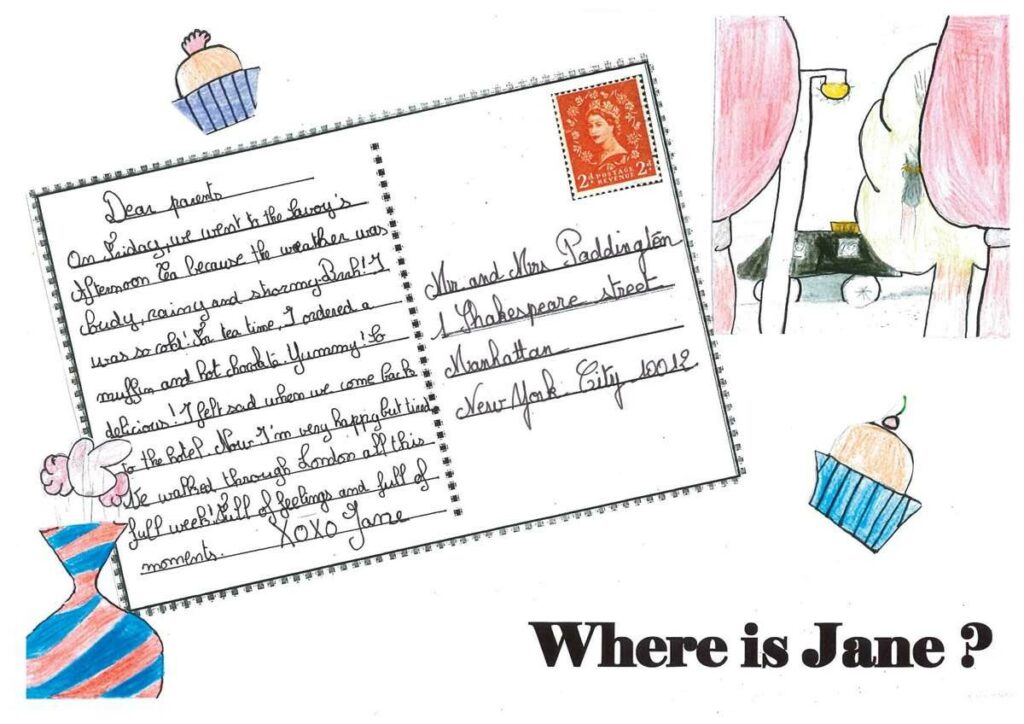 Dear parents
On Friday, we went to the Savoy's
Afternoon Tea because the weather was
cloudy, rainy and stormy. Brrh! I
was so cold! For tea time, I ordered a
muffin and hot chocolate Yummy! So
delicious! I felt sad when we come back
to the hotel. Now I'm very happy but tired
We walked through London all this
full week! Full of feelings and full of
moments.
XOXO Jane
2d POSTAGE REVENUE 2d
Mr and Mrs Paddington
1 Shakespeare street
Manhattan
New York City 10012
Where is Jane ?